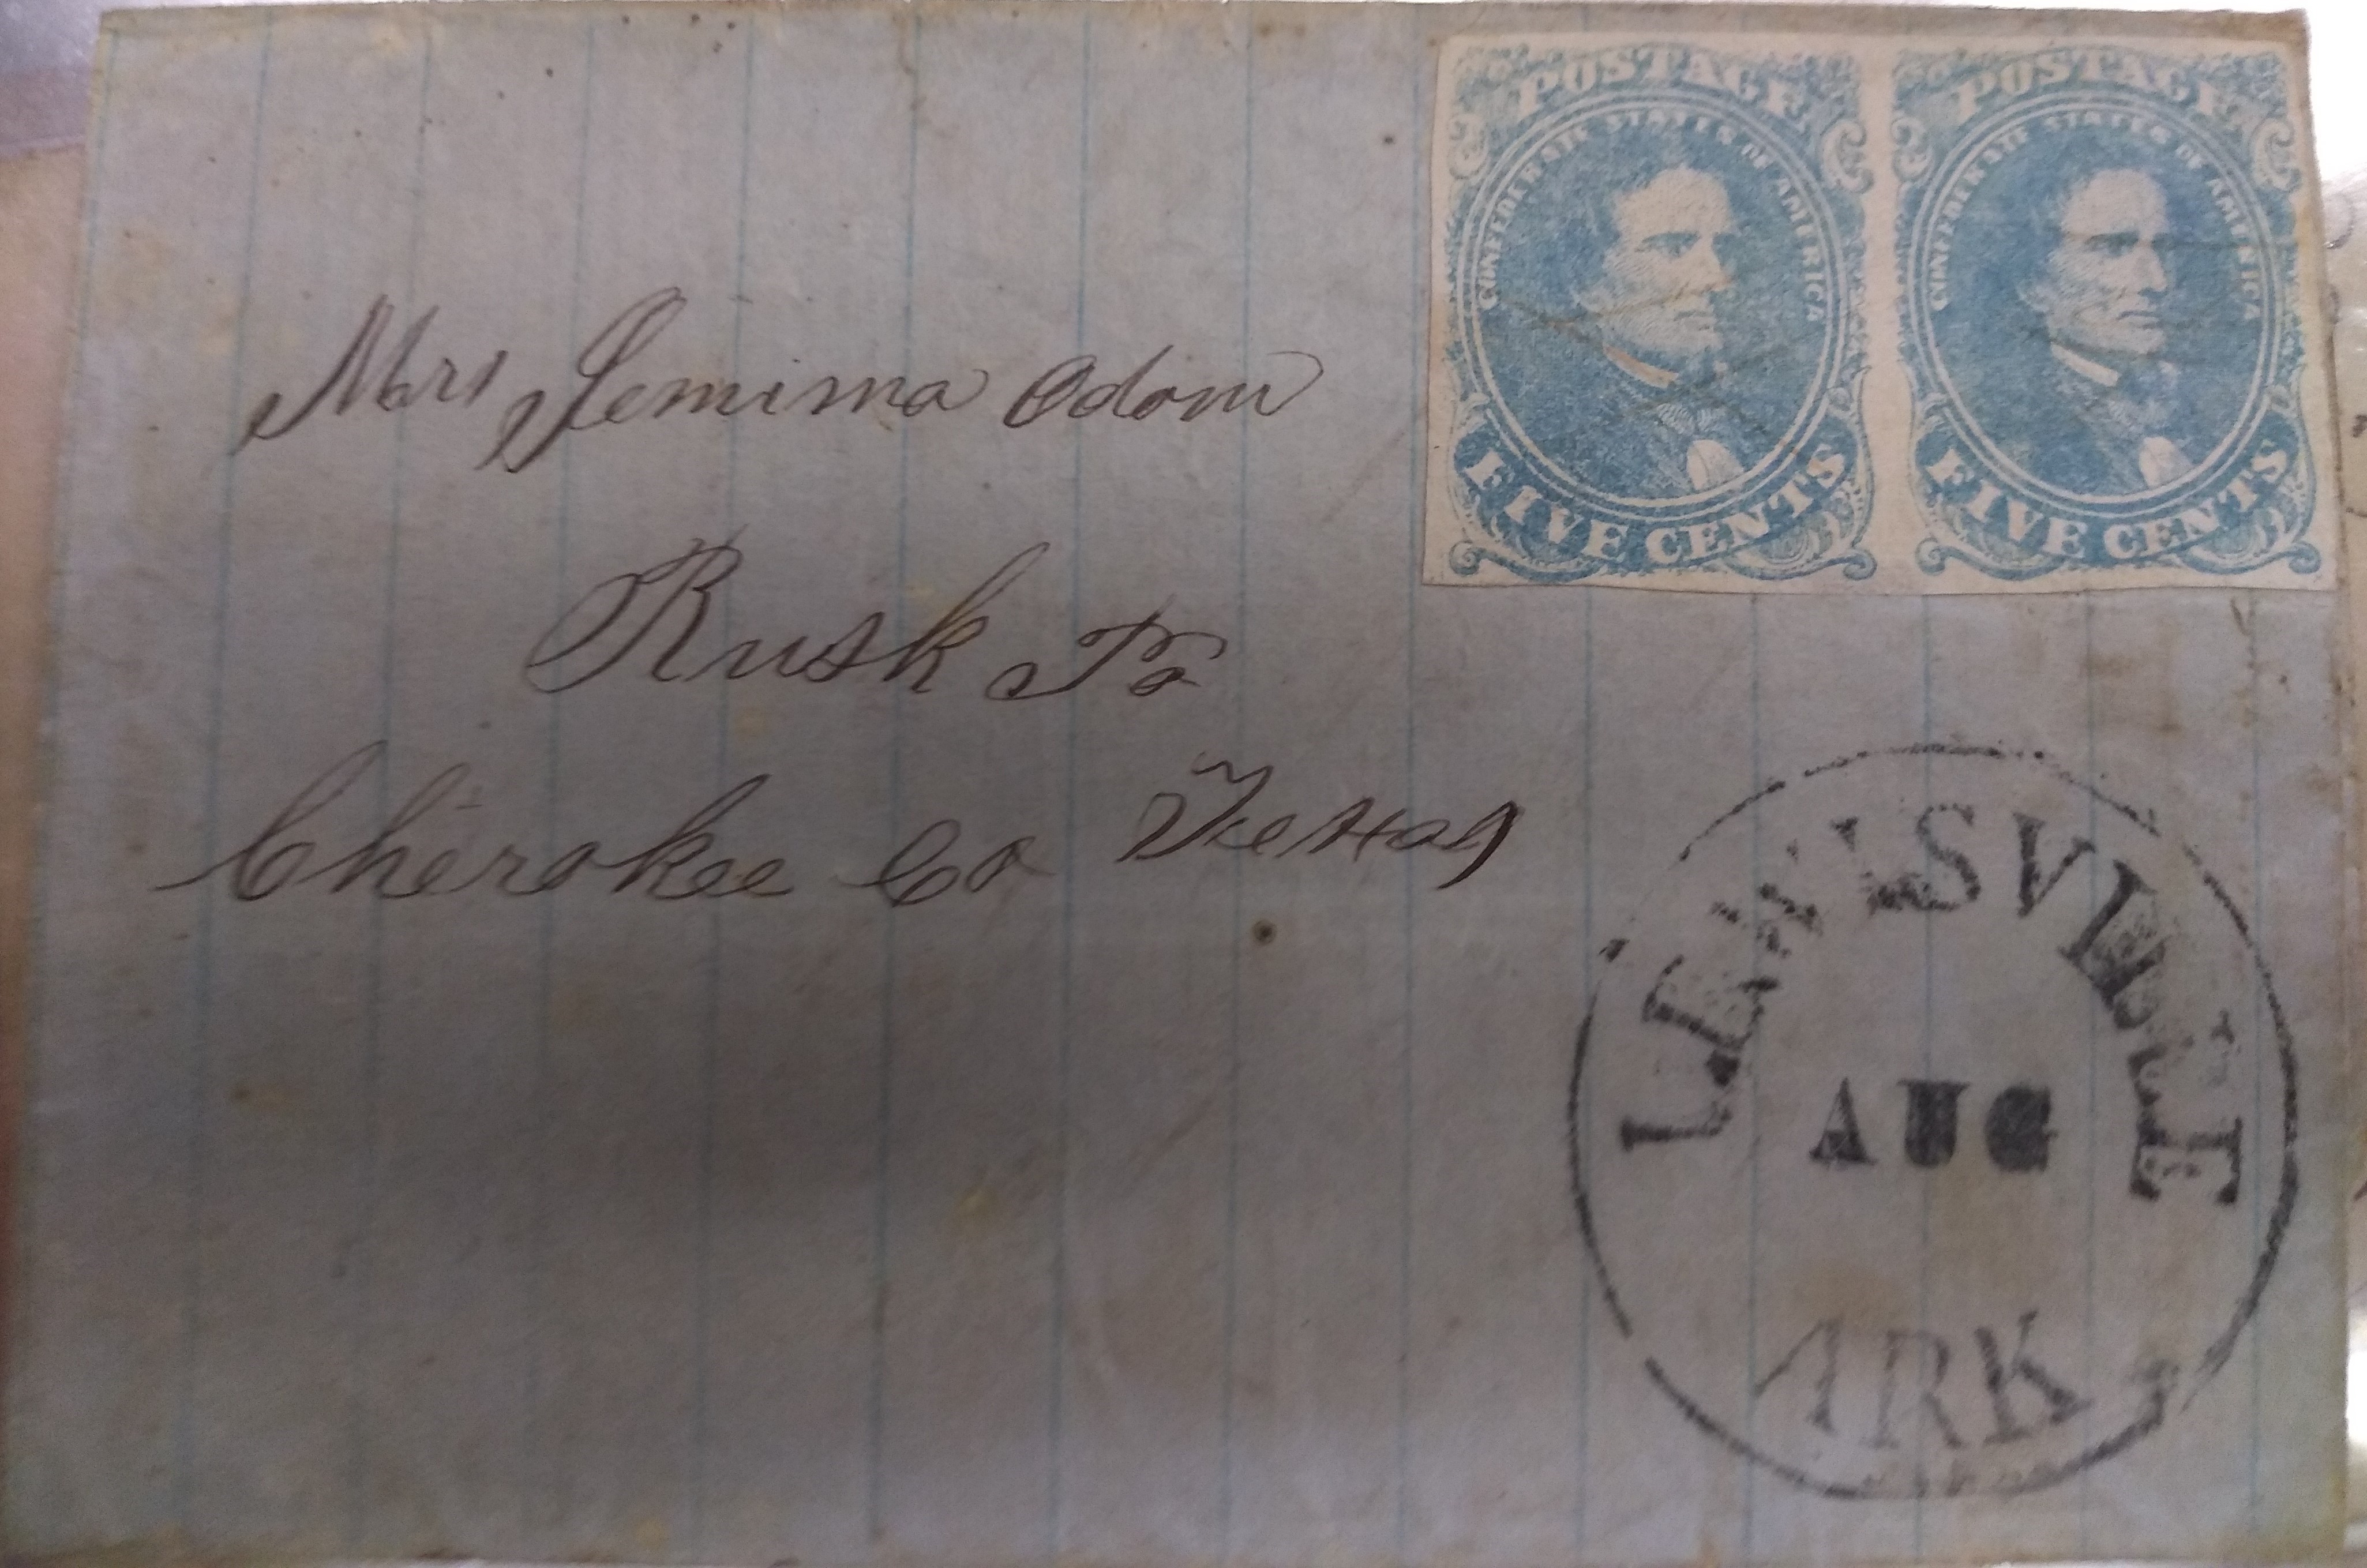 POSTAGE
CONFEDERATE STATES OF AMERICA
FIVE CENTS
POSTAGE
CONFEDERATE STATES OF AMERICA
FIVE CENTS
Mrs Jemima Odom
Rusk Po
Cherokee Co Texas
LEWISVILLE
AUG
ARK